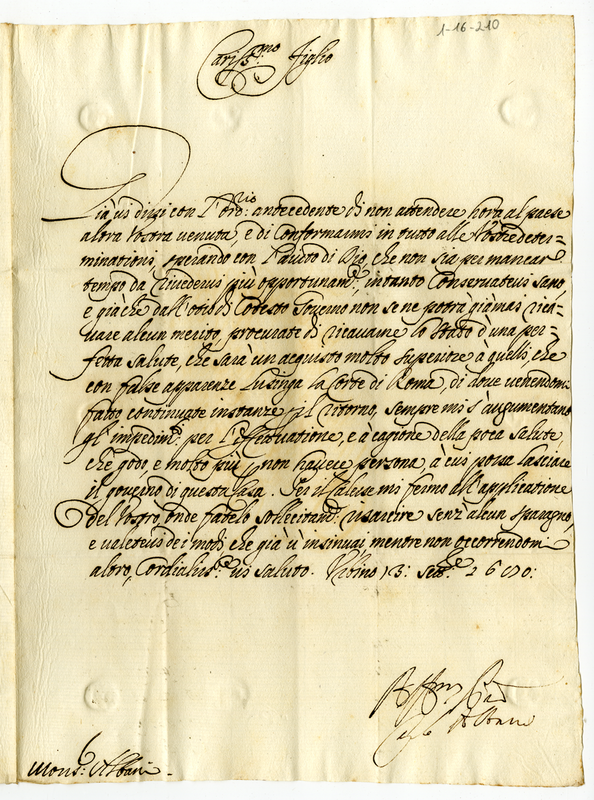 1-16-210
Cariss.mo Figlio
Già vi dissi con l'Ord.rio antecedente di non attendere hora al paese
altra vostra venuta, e di Conformarmi in tutto alle Vostre deter=
minationi, sperando con l'aiuto di Dio, che non sia per mancar
tempo da rivedervi più opportunam.e, intanto Conservatevi sano
e, già che dall'otio di Cotesto Governo non se ne potrà giàmai rica=
vare alcun merito, procurate di ricavarne lo stato d'una per=
fetta salute, che sarà un acquisto molto superiore à quelli, che
con false apparenze lusinga la Corte di Roma, di dove venendomi
fatto continuate instanze il ritorno, sempre mi s'augumentano
gl'impedim.ti per l'effettuatione, e à cagione della poca salute,
che godo, e molto più non havere persona, à cui possa lasciare
il governo di questa Casa. Per il Calesse mi fermo all'applicatione
del Vostro, onde fatelo sollecitam.e risarcire senz'alcun sparagno,
e valetevi dei modi che già v'insinuai mentre non occorrendomi
altro, Cordialiss.e vi saluto. Urbino 13: Sett.e 1670:
Aff.mo Pad
Albani
Mons.r Albani.